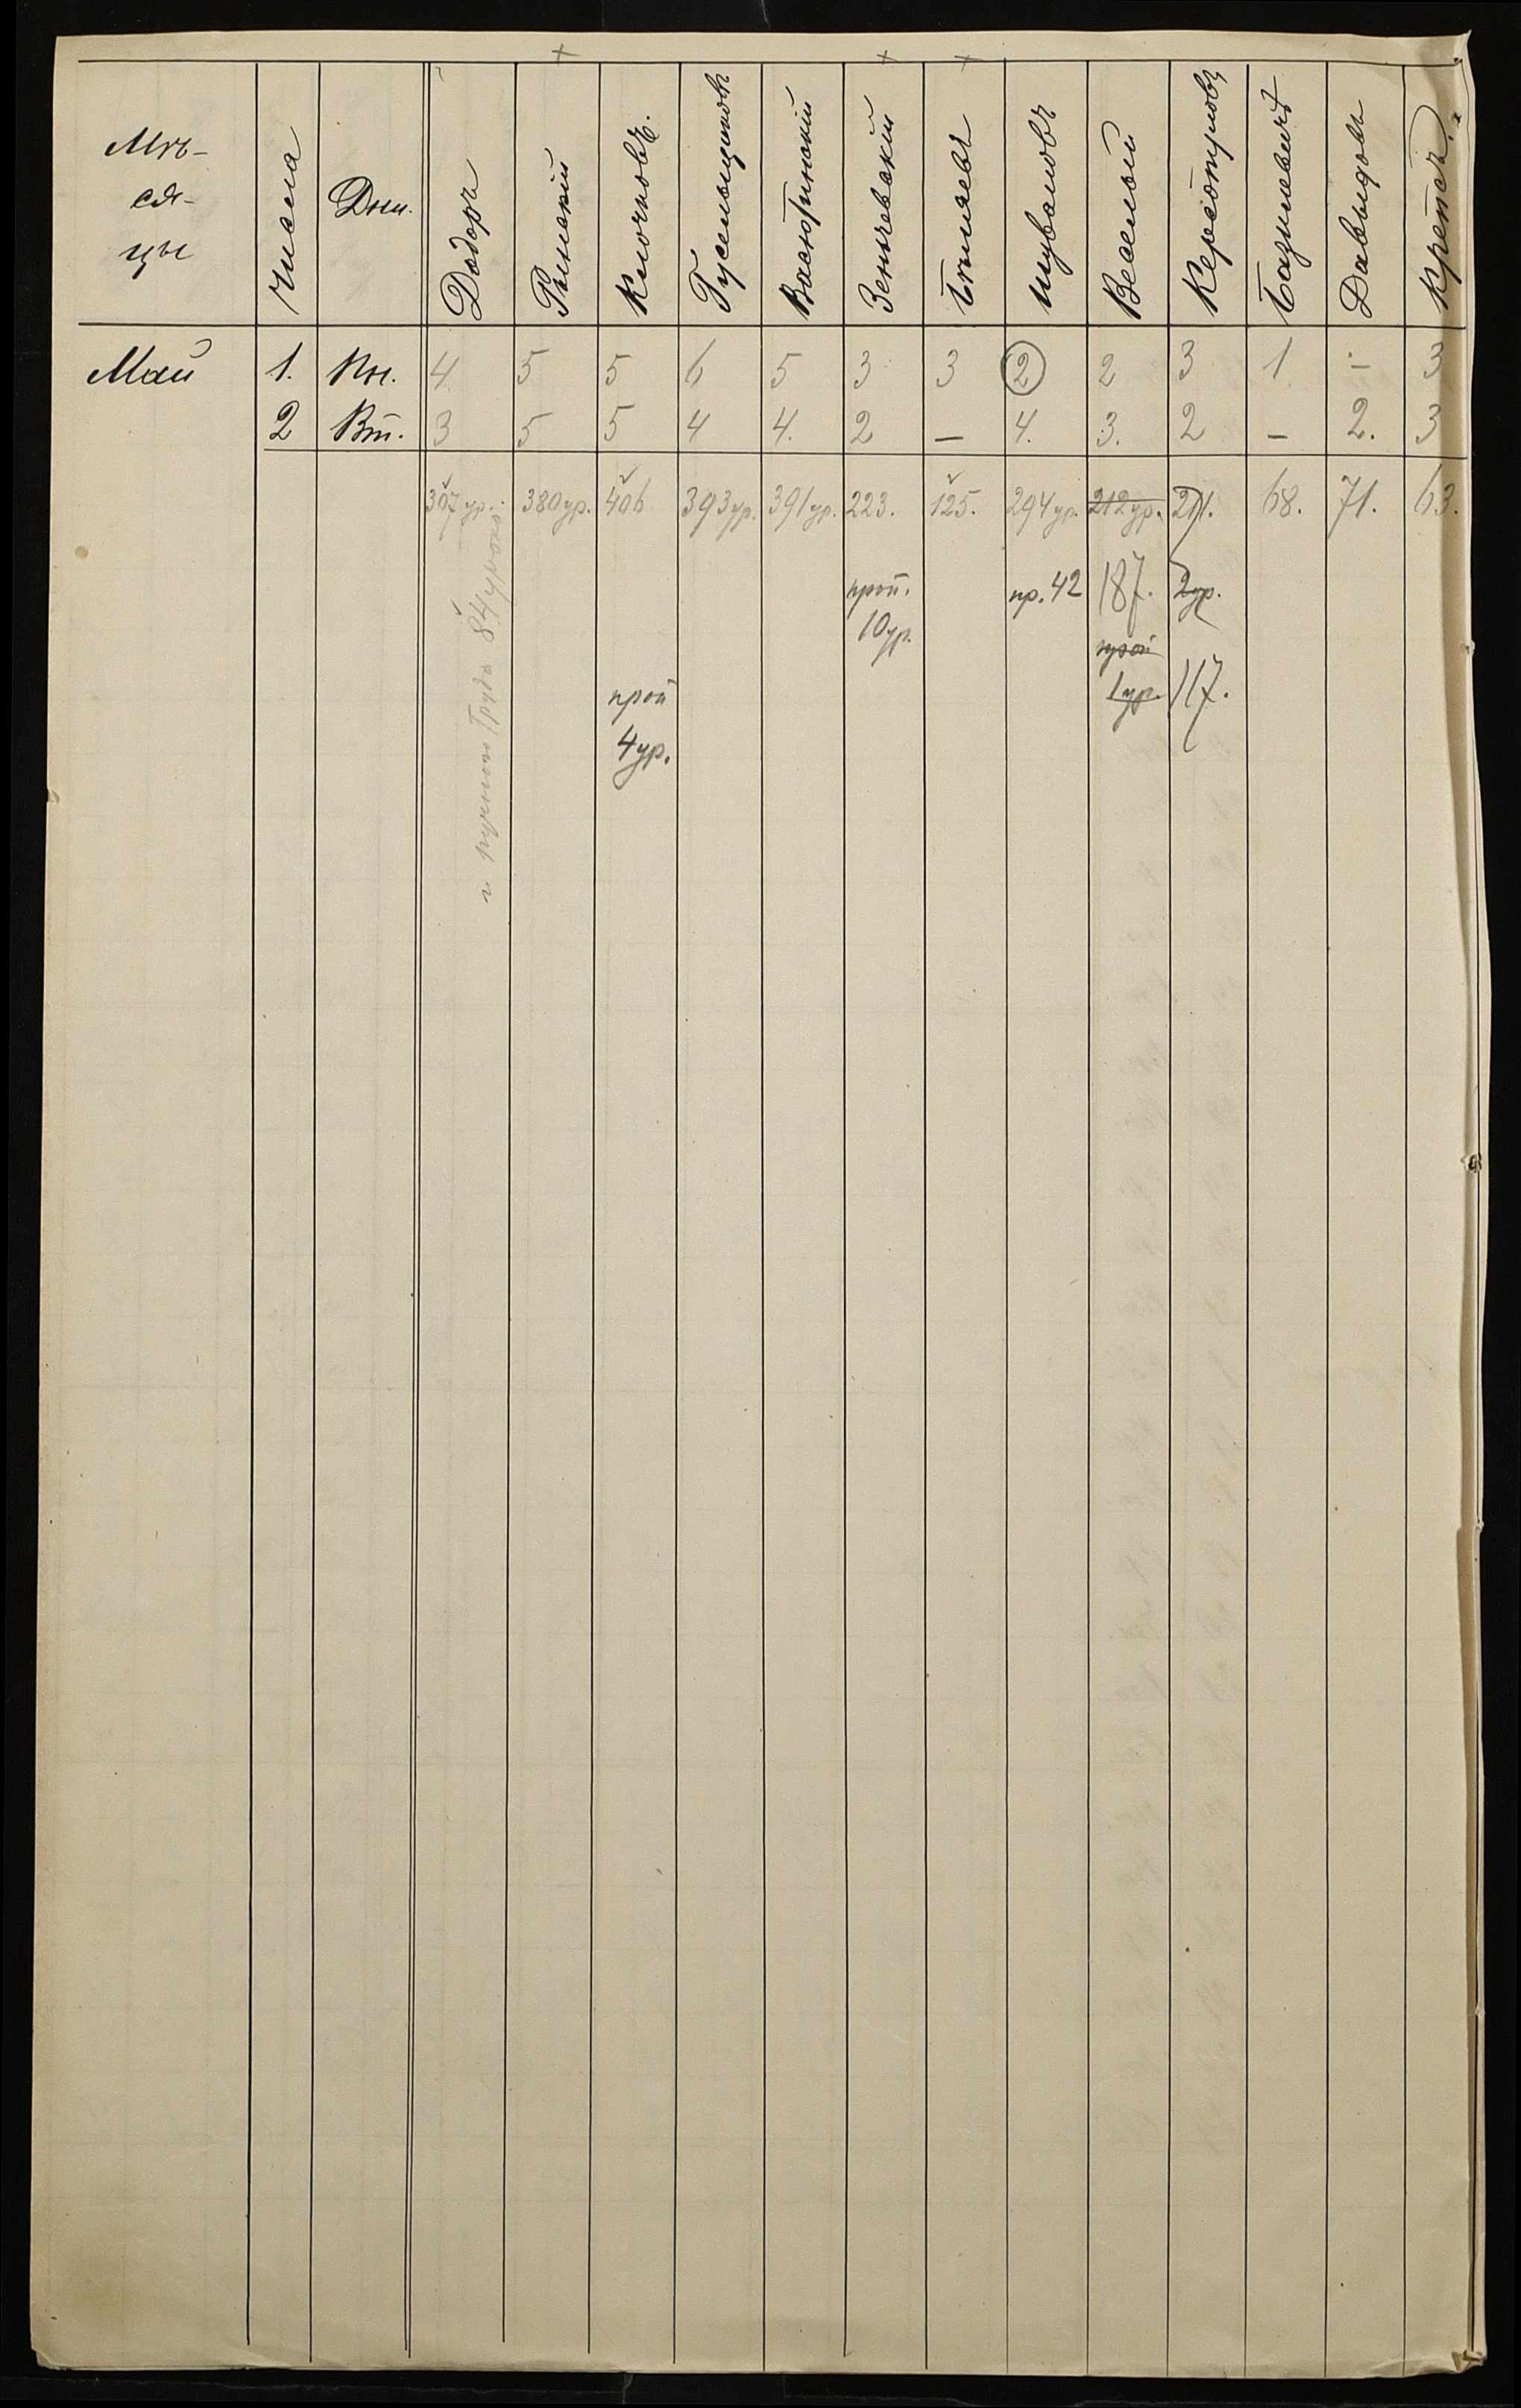 Мѣ-
ся-
цы
Числа
Дни.
Додоръ
Рынскій
Клочковъ.
Гусельщиковъ
Васютинскій
Зенкевскій
Шуваловъ
Веселый
Базилевичъ
Давыдовъ
Кретсъ.
Май 1. Пн. 4 5 5 6 5 3 3 2 2 3 1 - 3
2 Вт. 3 5 5 4 4. 2 – 4. 3. 2 – 2. 3
307 ур. 380 ур. 406 393 ур. 391 ур. 223. 125. 294 ур. 212 ур. 211. 68. 71. 63.
и ручного труда 84 урока
проп. пр. 42 187. 2 ур.
10 ур.
проп
1 ур. 117.
проп
4 ур.